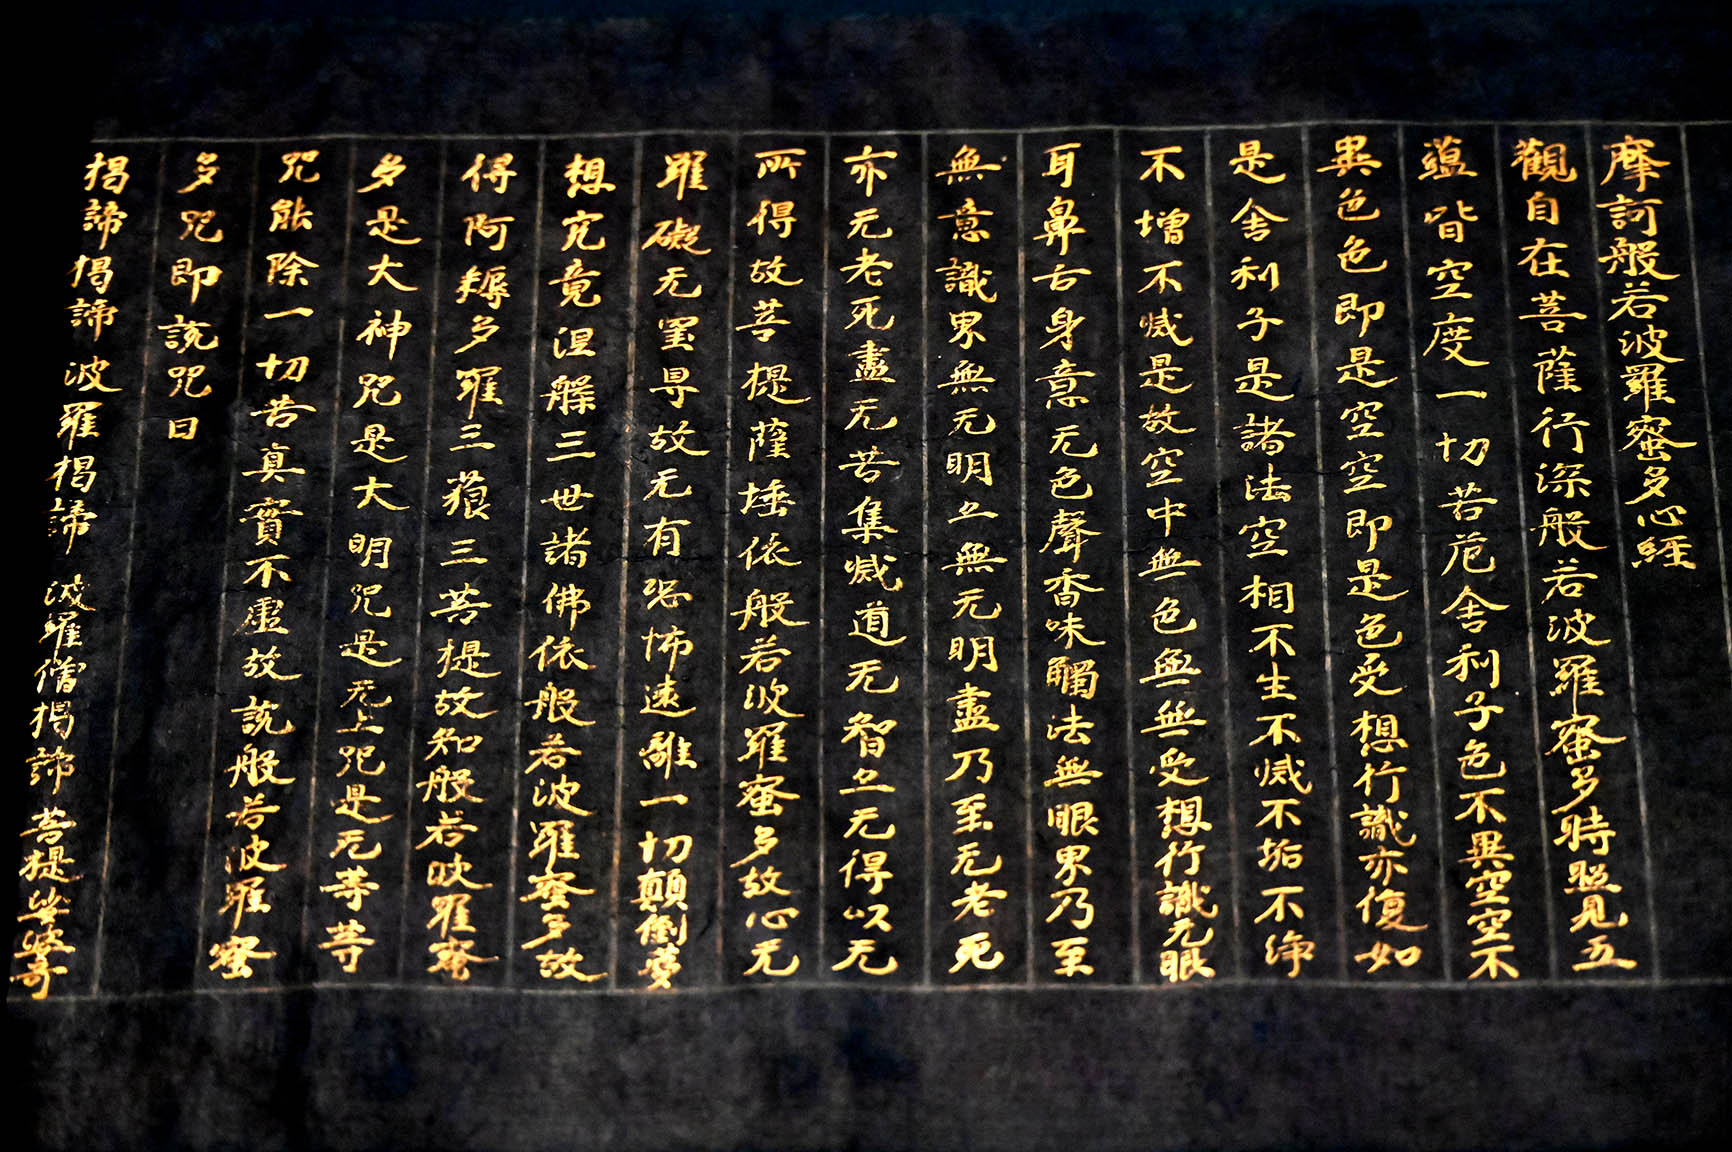 摩訶般若波羅蜜多心經
觀自在菩薩行深般若波羅蜜多時照見五
蘊皆空度一切苦厄舍利子色不異空空不
異色色即是空空即是色受想行識亦復如
是舍利子是諸法空相不生不滅不垢不淨
不增不減是故空中無色無無受想行識无眼
耳鼻舌身意无色聲香味觸法無眼界乃至
無意識界無无明亦無无明盡乃至无老死
亦无老死盡无苦集滅道无智亦无得以无
所得故菩提薩埵依般若波羅蜜多故心无
罣礙无罣导故无有恐怖遠離一切顛倒夢
想究竟涅槃三世諸佛依般若波羅蜜多故
得阿耨多羅三藐三菩提故知般若波羅蜜
多是大神咒是大明咒是无上咒是无等等
咒能除一切苦真實不虛故說般若波羅蜜
多咒即說咒曰
揭諦揭諦 波羅揭諦 波羅僧揭諦 菩提娑婆訶